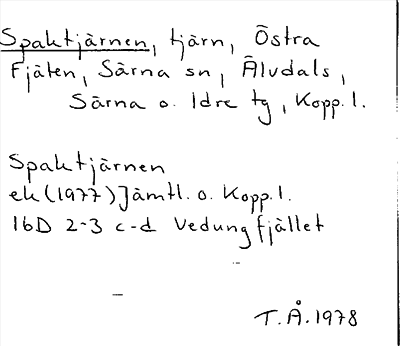 Spaktjärnen, tjärn, Östra
Fjäten, Särna sn, Älvdals,
Särna o. Idre tg, Kopp. l.
Spaktjärnen
ek (1977) Jämtl. o. Kopp. l.
16D 2-3 c-d Vedungfjället
T. Å. 1978